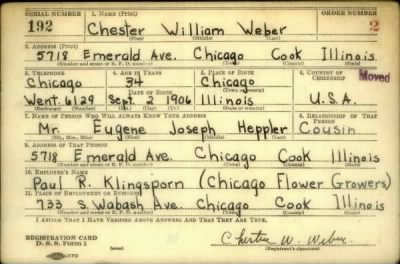 SERIAL NUMBER 1. NAME (Print) ORDER NUMBER
192 Chester William Weber 2
(First) (Middle) (Last)
2. ADDRESS (Print)
5718 Emerald Ave. Chicago Cook Illinois
(Number and street or R. F. D. number) (Town) (County) (State)
3. TELEPHONE 4. AGE IN YEARS 5. PLACE OF BIRTH 6. COUNTRY OF CITIZENSHIP
Chicago 34 Chicago Moved
DATE OF BIRTH (Town or county)
Went. 6129 Sept. 2 1906 Illinois U.S.A.
(Exchange) (Number) (Mo.) (Day) (Yr.) (State or country)
7. NAME OF PERSON WHO WILL ALWAYS KNOW YOUR ADDRESS 8. RELATIONSHIP OF THAT PERSON
Mr. Eugene Joseph Heppler Cousin
(Mr., Mrs., Miss) (First) (Middle) (Last)
9. ADDRESS OF THAT PERSON
5718 Emerald Ave. Chicago Cook Illinois
(Number and street or R. F. D. number) (Town) (County) (State)
10. EMPLOYER'S NAME
Paul R. Klingsporn (Chicago Flower Growers)
11. PLACE OF EMPLOYMENT OR BUSINESS
733 S. Wabash Ave Chicago Cook Illinois
(Number and street or R. F. D. number) (Town) (County) (State)
I AFFIRM THAT I HAVE VERIFIED ABOVE ANSWERS AND THAT THEY ARE TRUE.
REGISTRATION CARD
D. S. S. Form 1 (over) Chester W. Weber
(Signature)